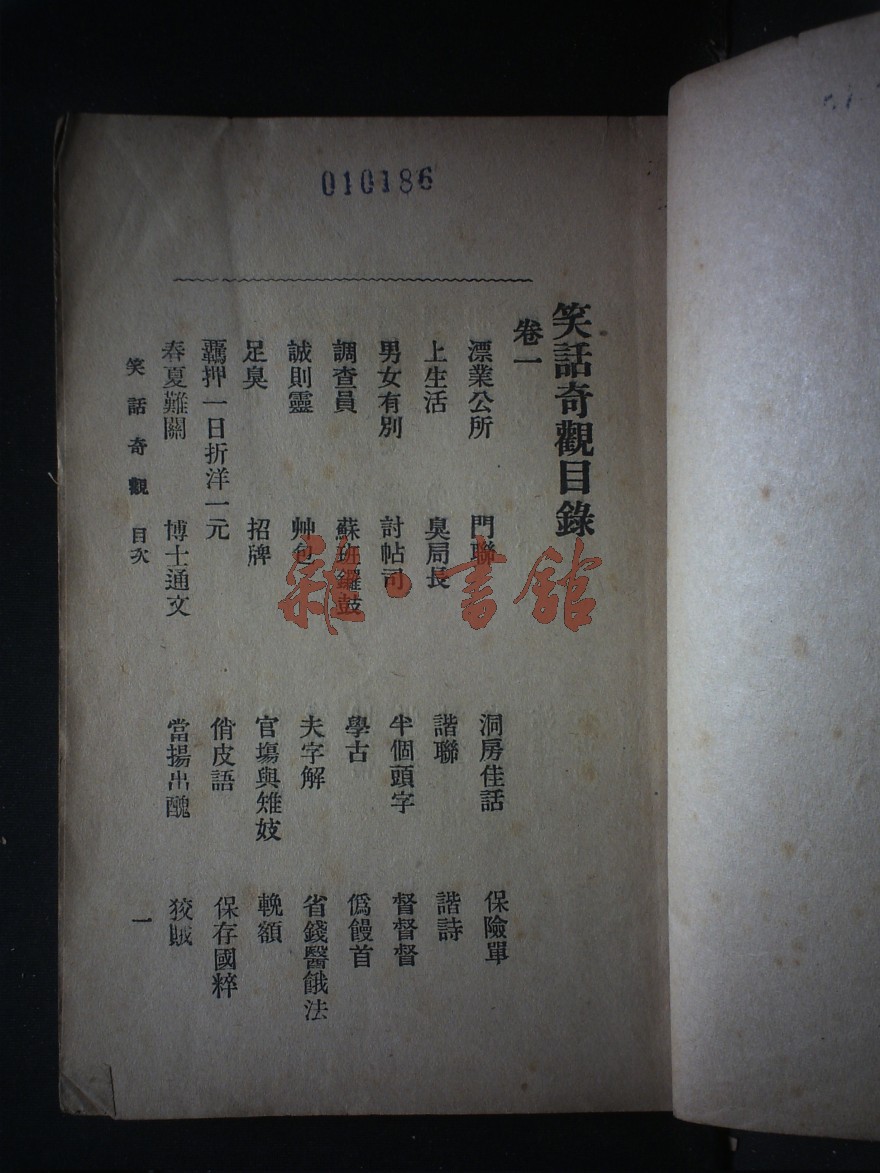 010186
笑話奇觀目錄
卷一
漂業公所　門聯　洞房佳話　保險單
上生活　臭局長　諧聯　諧詩
男女有別　討帖司　半個頭字　督督督
調查員　蘇班鑼鼓　學古　僞饅首
誠則靈　艸包　夫字解　省錢醫餓法
足臭　招牌　官塲與雉妓　輓額
羈押一日折洋一元　俏皮語　保存國粹
春夏難關　博士通文　當揚出醜　狡賊
笑話奇觀　目次　一
雜·書館